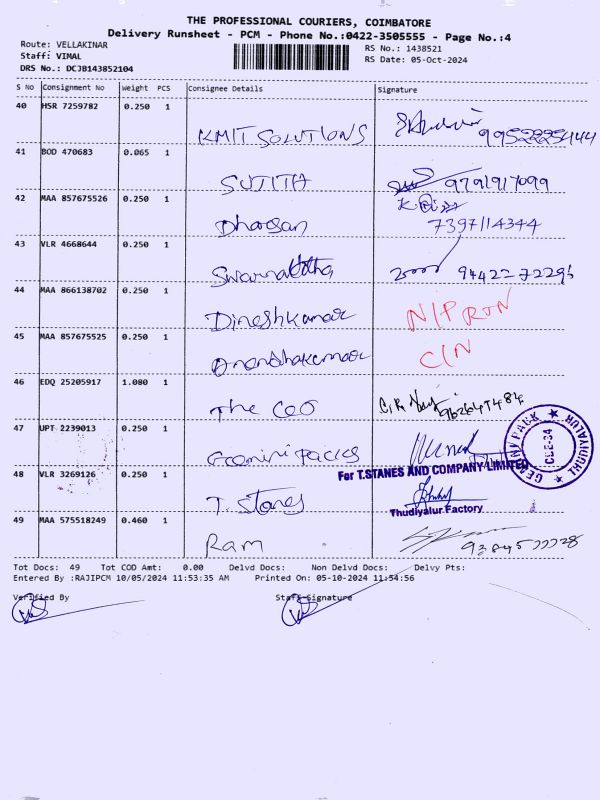 THE PROFESSIONAL COURIERS, COIMBATORE
Delivery Runsheet - PCM - Phone No.:0422-3505555 - Page No.:4
Route: VELLAKINAR
RS No.: 1438521
Staff: VIMAL
RS Date: 05-Oct-2024
DRS No.: DCJB143852104
S No Consignment No Weight PCS Consignee Details Signature
40 HSR 7259782 0.250 1
KMIT SOLUTIONS
41 BOD 470683 0.065 1
SUJITH 9791917099
42 MAA 857675526 0.250 1
Dharsan 7397114344
43 VLR 4668644 0.250 1
Swarnalatha
44 MAA 866138702 0.250 1
Dineshkumar N/P RTN
45 MAA 857675525 0.250 1
Anandhakumar C/N
46 EDQ 25205917 1.080 1
The CEO
47 UPT 2239013 0.250 1
Gemini Packs
GEMINI PACK
THUDIYALUR
CBE-34
48 VLR 3269126 0.250 1
For T.STANES AND COMPANY LIMITED
T. Stanes
Thudiyalur Factory
49 MAA 575518249 0.460 1
Ram
Tot Docs: 49 Tot COD Amt: 0.00 Delvd Docs: Non Delvd Docs: Delvy Pts:
Entered By :RAJIPCM 10/05/2024 11:53:35 AM Printed On: 05-10-2024 11:54:56
Verified By Staff Signature